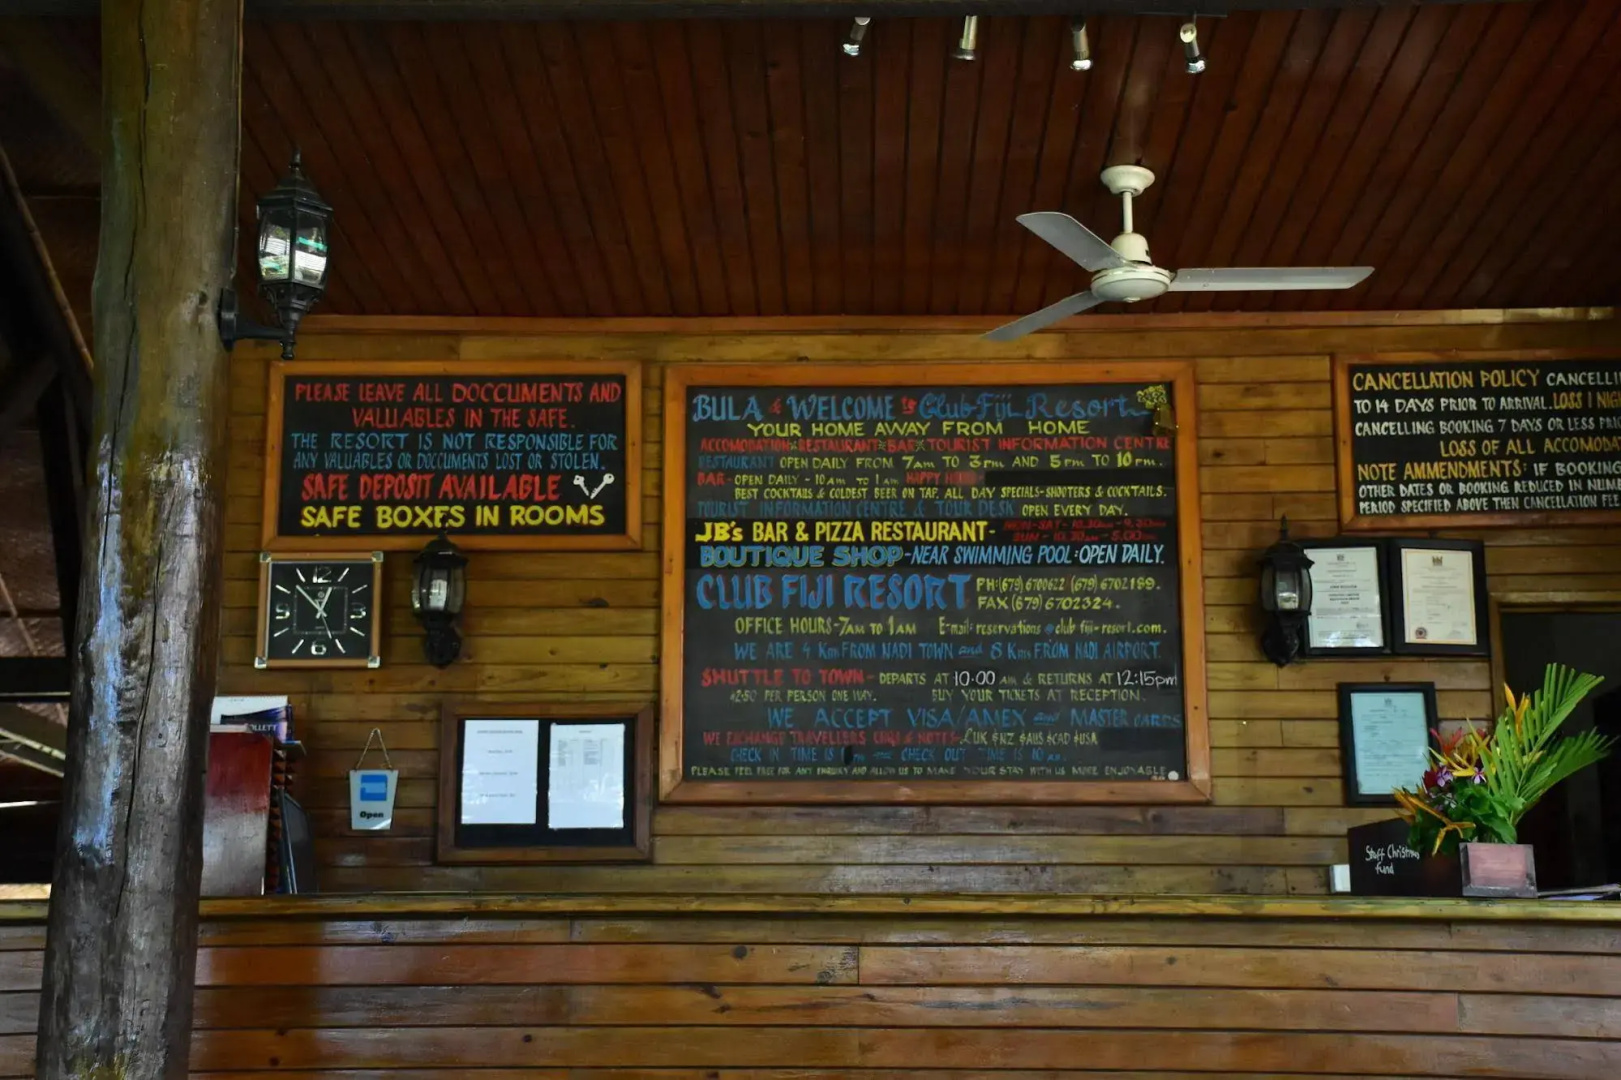 PLEASE LEAVE ALL DOCCUMENTS AND
VALUABLES IN THE SAFE.
THE RESORT IS NOT RESPONSIBLE FOR
ANY VALUABLES OR DOCCUMENTS LOST OR STOLEN.
SAFE DEPOSIT AVAILABLE
SAFE BOXES IN ROOMS
BULA & WELCOME to Club Fiji Resort
YOUR HOME AWAY FROM HOME
ACCOMODATION RESTAURANT BAR TOURIST INFORMATION CENTRE
RESTAURANT OPEN DAILY FROM 7am TO 3pm AND 5pm TO 10pm.
BAR - OPEN DAILY - 10am TO 1am HAPPY
BEST COCKTAILS & COLDEST BEER ON TAP, ALL DAY SPECIALS-SHOOTERS & COCKTAILS.
TOURIST INFORMATION CENTRE & TOUR DESK OPEN EVERY DAY.
JB's BAR & PIZZA RESTAURANT- MON-SAT-10.30am-9.30pm
SUN-10.30am-5.00pm
BOUTIQUE SHOP-NEAR SWIMMING POOL:OPEN DAILY.
CLUB FIJI RESORT PH:(679) 6700622 (679) 6702189.
FAX (679) 6702324.
OFFICE HOURS-7AM TO 1AM E-mail: reservations@club fiji-resort.com.
WE ARE 4 Kms FROM NADI TOWN and 8 Kms FROM NADI AIRPORT.
SHUTTLE TO TOWN- DEPARTS AT 10:00 AM & RETURNS AT 12:15pm
$2.50 PER PERSON ONE WAY. BUY YOUR TICKETS AT RECEPTION.
WE ACCEPT VISA/AMEX and MASTER CARDS
WE EXCHANGE TRAVELLERS CHQS & NOTES-£UK $NZ $AUS $CAD $USA
CHECK IN TIME IS CHECK OUT TIME IS 10 am.
PLEASE FEEL FREE FOR ANY ENQUIRY AND ALLOW US TO MAKE YOUR STAY WITH US MORE ENJOYABLE
CANCELLATION POLICY
TO 14 DAYS PRIOR TO ARRIVAL. LOSS 1
CANCELLING BOOKING 7 DAYS OR LESS
LOSS OF ALL
NOTE AMMENDMENTS: IF BOOKING
OTHER DATES OR BOOKING REDUCED IN
PERIOD SPECIFIED ABOVE THEN CANCELLATION
12
3
6
9
Open
Staff Christmas
fund